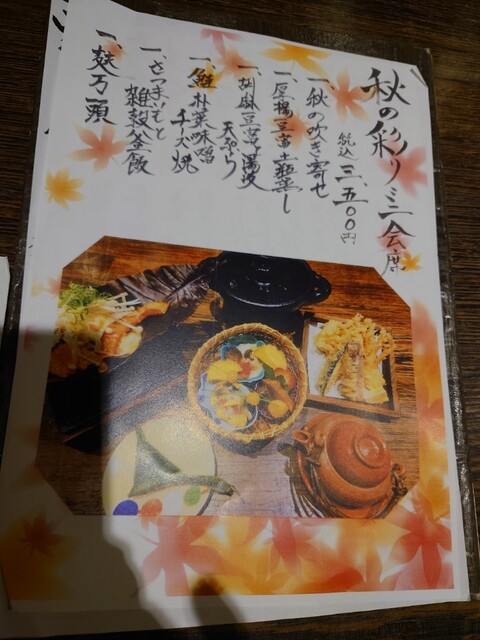 秋の彩りミニ会席
税込 三、五〇〇円
一、秋の吹き寄せ
一、厚揚豆富土瓶蒸し
一、胡麻豆富湯波
天ぷら
一、鮭朴葉味噌
チーズ焼
一、さつまいもと
雑穀釜飯
一、麩万頭